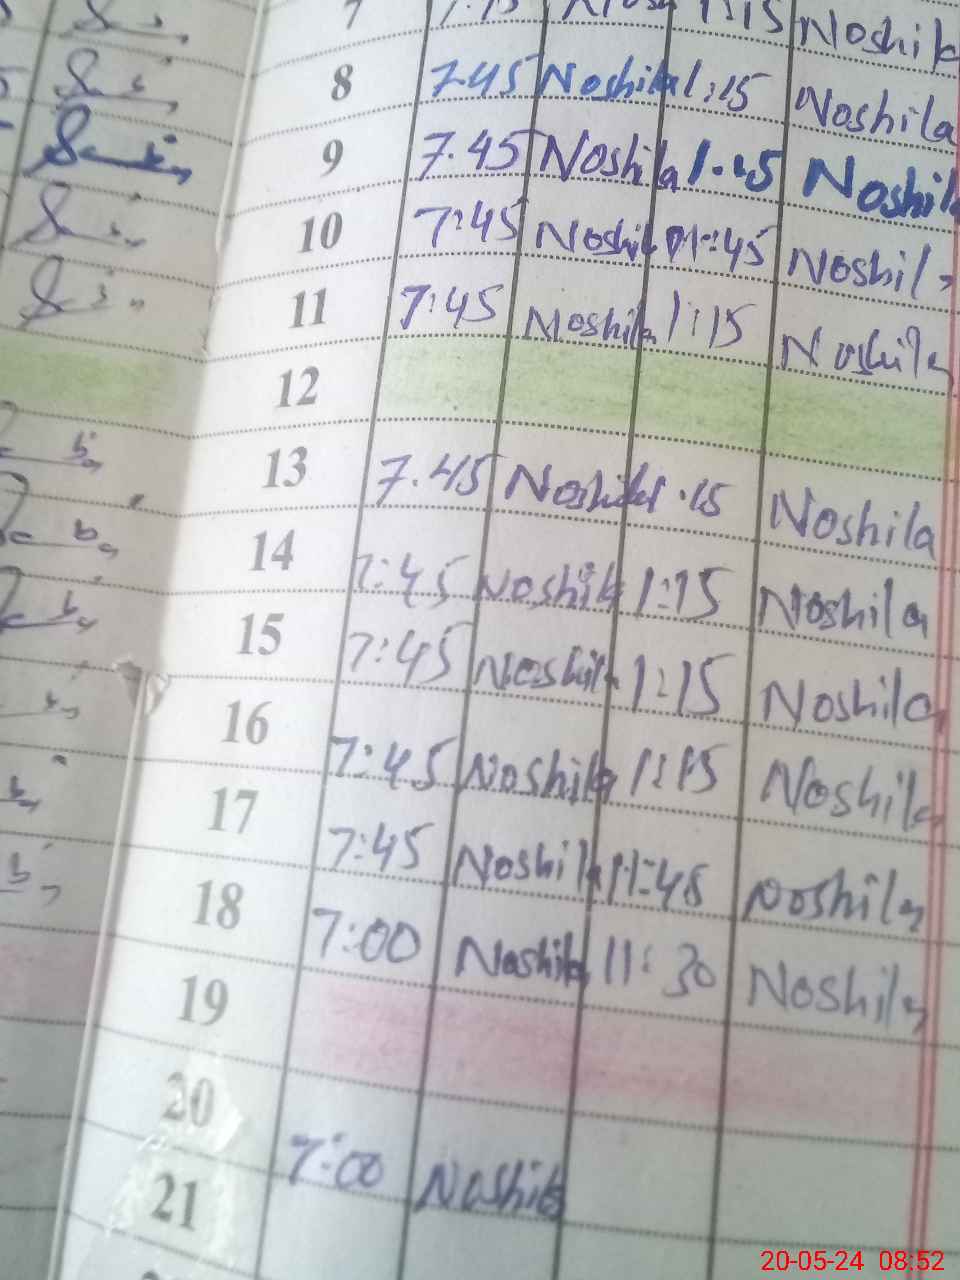 7 1:15 Noshik
8 7.45 Noshila 1:15 Noshila
9 7.45 Noshila 1.15 Noshil
10 7:45 Noshil 11:45 Noshil
11 7:45 Noshila 1:15 Noshila
12
13 7.45 Noshila 1.15 Noshila
14 7:45 Noshila 1:15 Noshila
15 7:45 Noshila 1:15 Noshila
16 7:45 Noshila 1:15 Noshila
17 7:45 Noshila 11:45 Noshila
18 7:00 Noshila 11:30 Noshila
19
20 7:00 Noshila
21
20-05-24 08:52